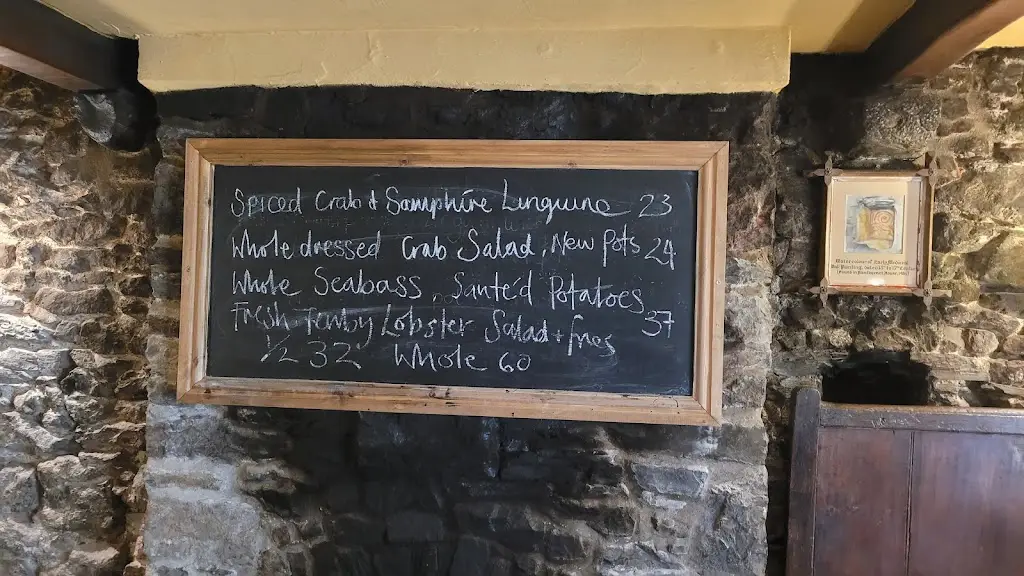 Spiced Crab & Samphire Linguine 23
Whole dressed Crab Salad, New Pots 24
Whole Seabass, Sauté'd Potatoes 37
Fresh Tenby Lobster Salad + fries
½ 32 Whole 60